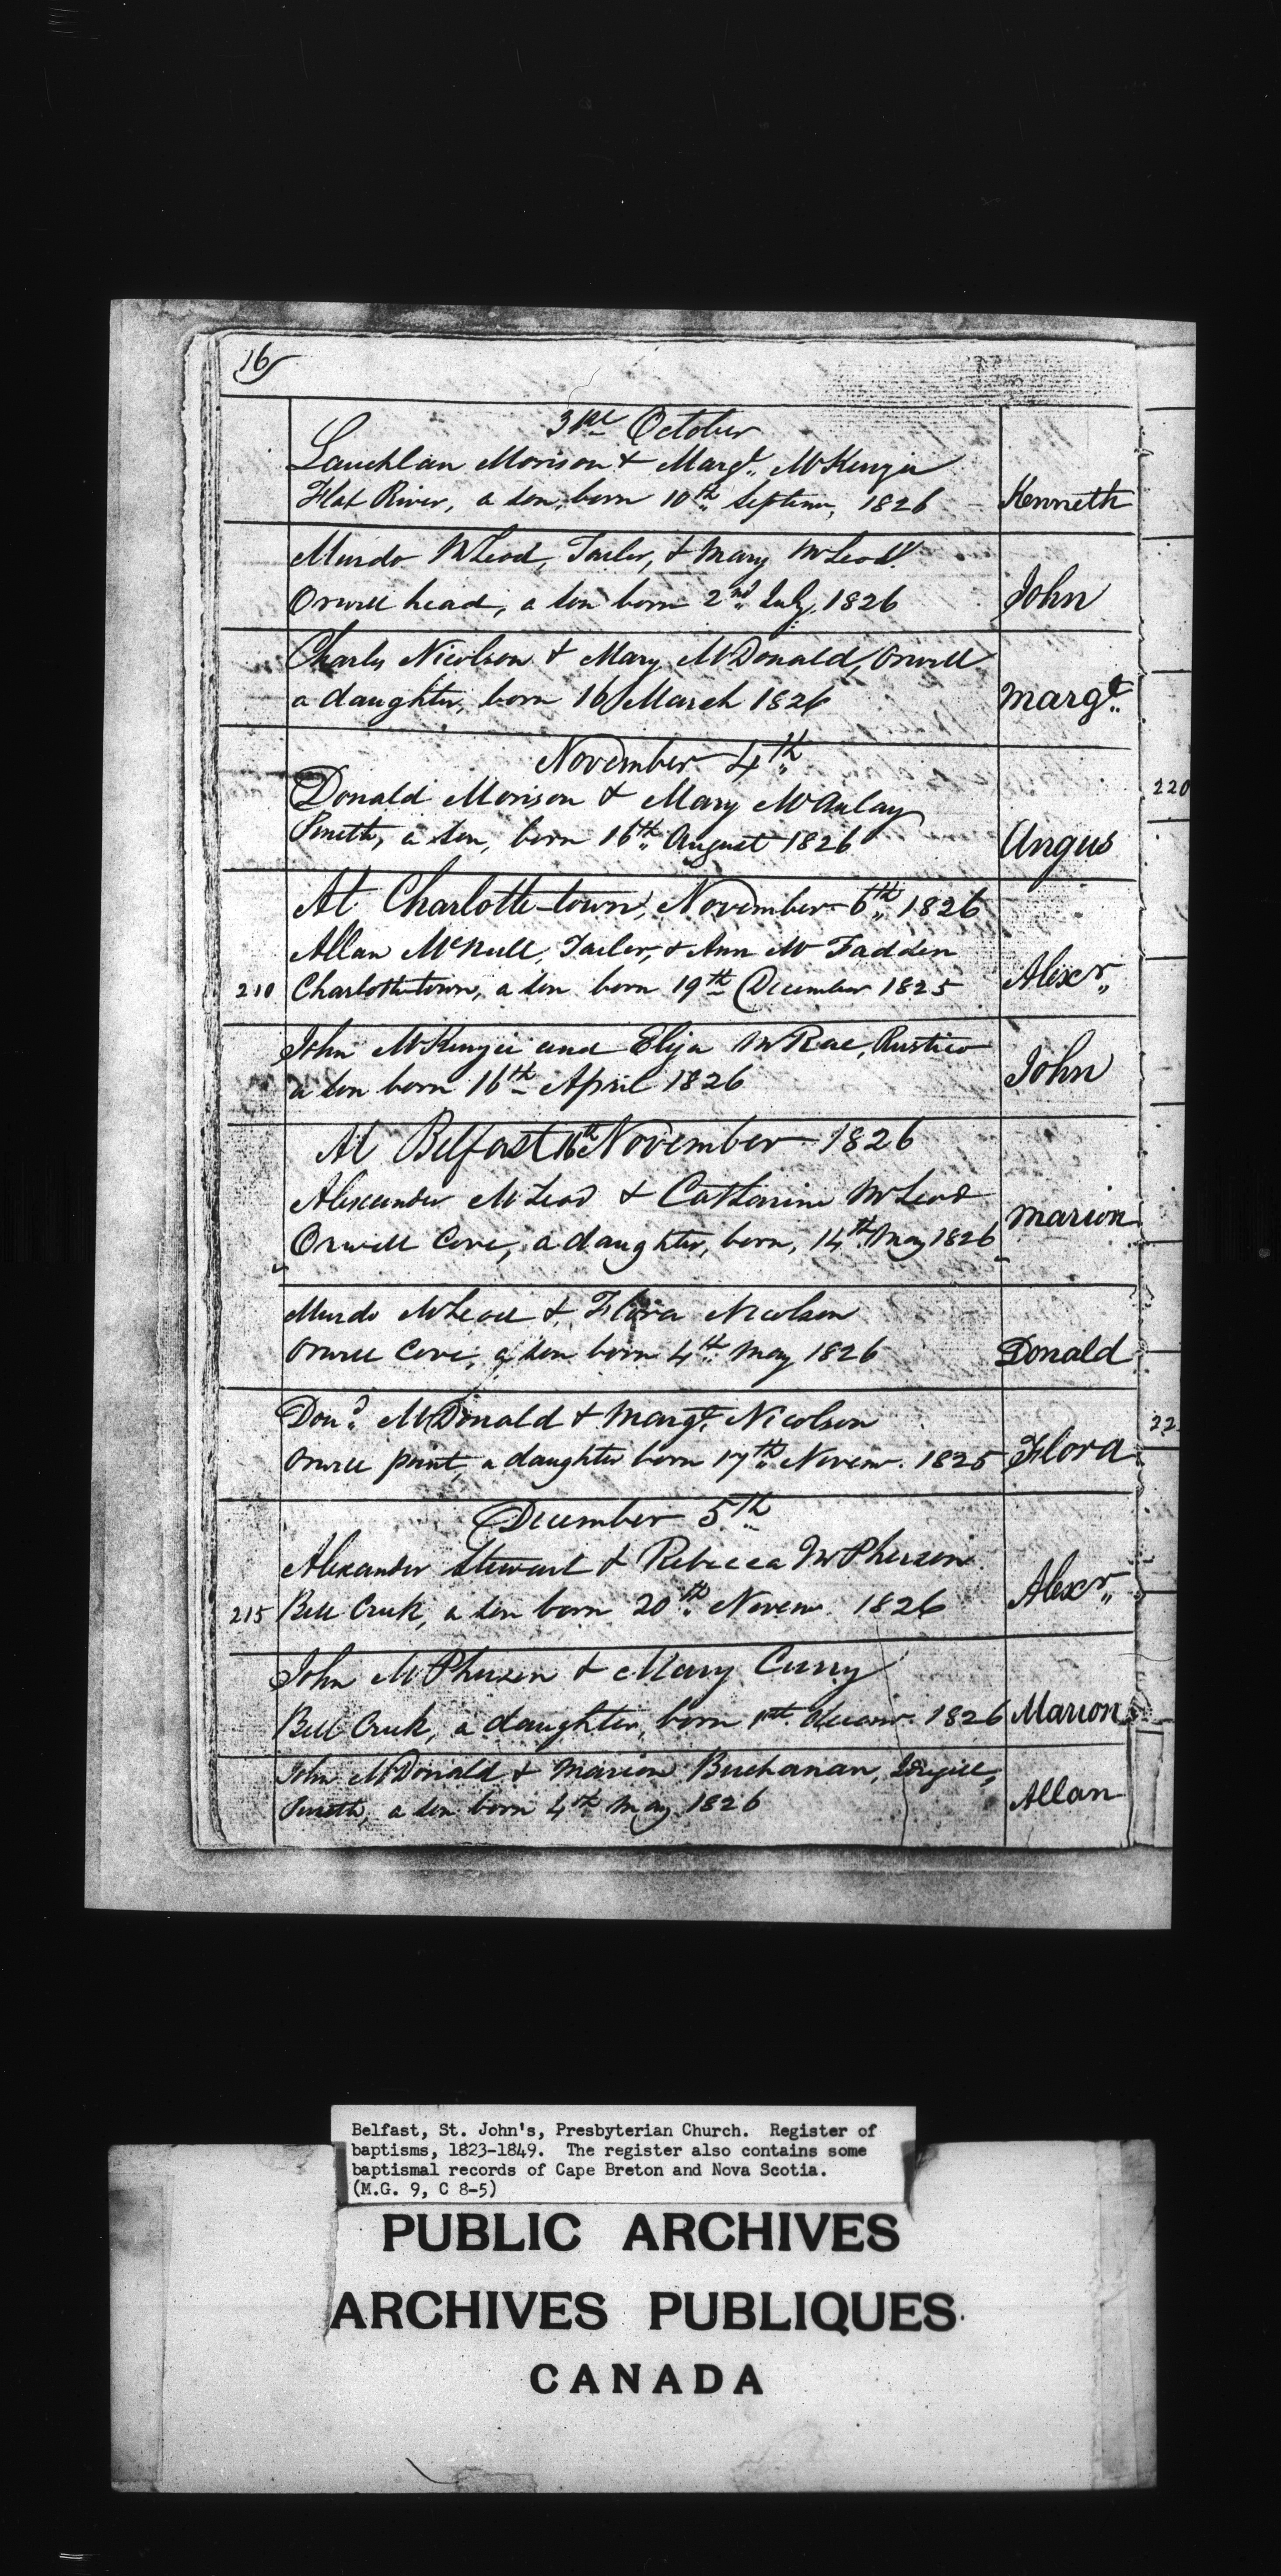 16
31st October
Lauchlan Morison & Margt. McKenzie
Flat River, a son, born 10th Septemr. 1826 - Kenneth
Murdo McLeod, Tailor, & Mary McLeod
Orwell head, a son born 2nd July, 1826 John
Charles Nicolson & Mary McDonald, Orwell
a daughter, born 16 March 1826 Margt.
November 4th
220
Donald Morison & Mary McAulay
Pineth, a son, born 16th August 1826 Angus
At Charlotte-town, November 6th 1826
Allan McNeill, Tailor, & Ann McFadden
210 Charlottetown, a son born 19th December 1825 Alexr.
John McKenzie and Eliza McRae, Rustico
a son born 16th April 1826 John
At Belfast 16th November 1826
Alexander McLeod & Catharine McLeod
Orwell Cove, a daughter, born, 14th May 1826 Marion
Murdo McLeod & Flora Nicolson
Orwell Cove, a son born 4th May 1826 Donald
Dond. McDonald & Margt. Nicolson
22
Orwell point, a daughter born 17th Novemr. 1825 Flora
December 5th
Alexander Stewart & Rebecca McPherson
215 Bell Creek, a son born 20th Novemr. 1826 Alexr.
John McPherson & Mary Curry
Bell Creek, a daughter, born 1st Decemr. 1826 Marion
John McDonald & Marion Buchanan,
Pineth, a son born 4th May 1826 Allan
Belfast, St. John's, Presbyterian Church. Register of
baptisms, 1823-1849. The register also contains some
baptismal records of Cape Breton and Nova Scotia.
(M.G. 9, C 8-5)
PUBLIC ARCHIVES
ARCHIVES PUBLIQUES
CANADA